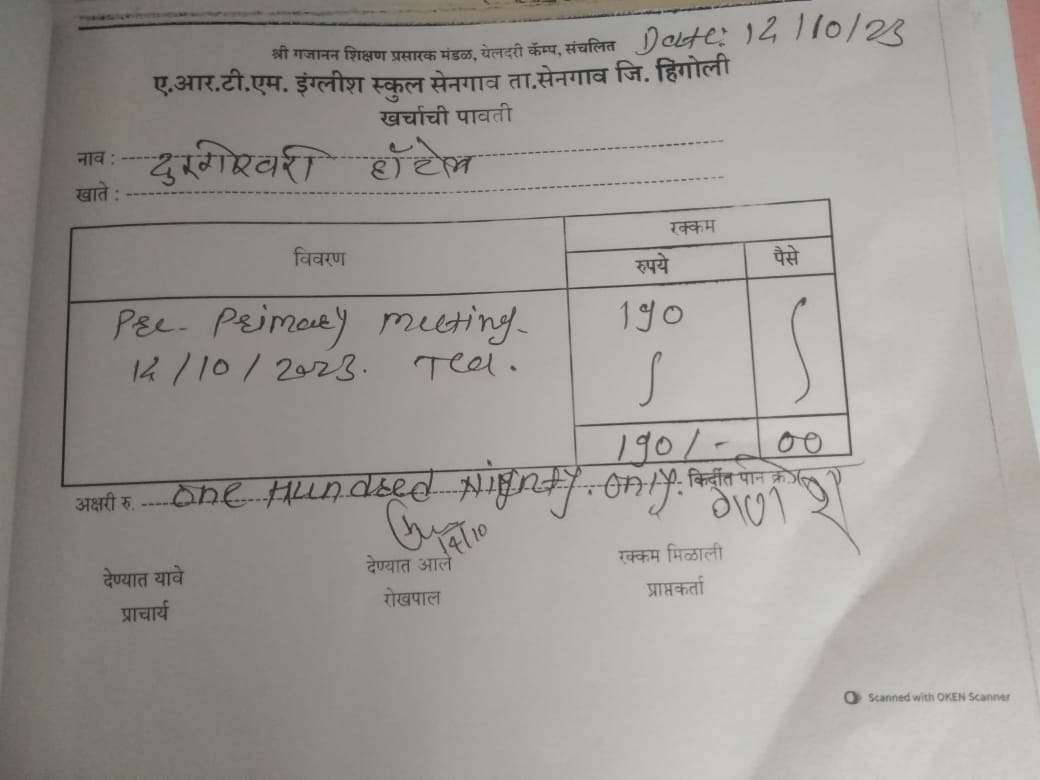 श्री गजानन शिक्षण प्रसारक मंडळ, येलदरी कॅम्प, संचलित Date: 14/10/23
ए.आर.टी.एम. इंग्लीश स्कुल सेनगाव ता.सेनगाव जि. हिंगोली
खर्चाची पावती
नाव : दुर्गेश्वरी हॉटेल
खाते :
विवरण रक्कम
रुपये पैसे
Pre- Primary meeting- 190
14/10/2023. Tea.
190/- 00
अक्षरी रु. one Hundred Nignty. only. किर्दीत पान क्र
14/10
देण्यात यावे देण्यात आले रक्कम मिळाली
प्राचार्य रोखपाल प्राप्तकर्ता
Scanned with OKEN Scanner